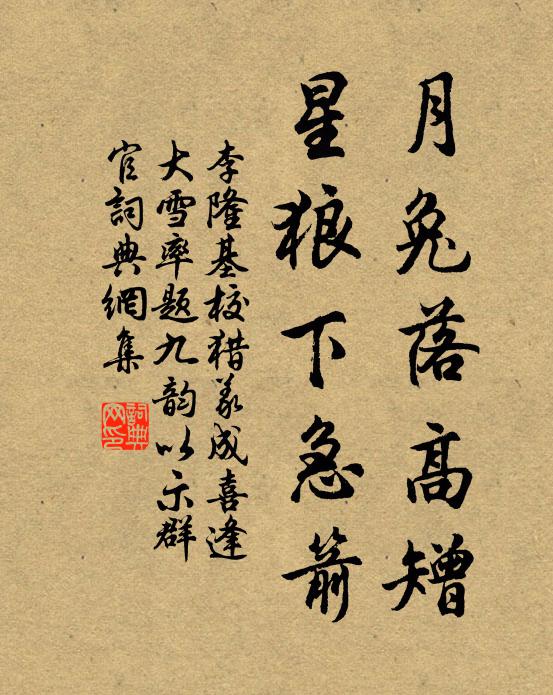 月兔落高矰
星狼下急箭
李隆基校猎義成喜逢
大雪率题九韵以示群
官詞典網集
詞典网印